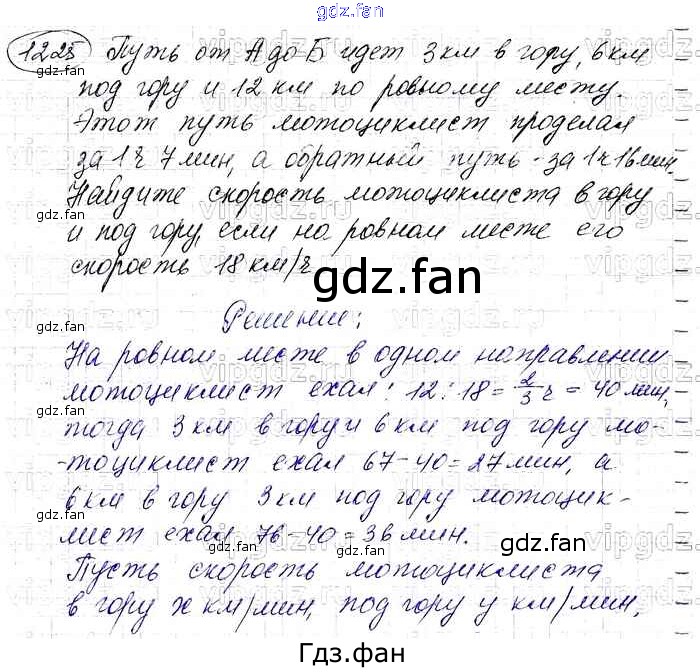 gdz.fan
1225 Путь от А до Б идет 3 км в гору, 6 км
под гору и 12 км по ровному месту.
Этот путь мотоциклист проделал
за 1 ч 7 мин, а обратный путь - за 1ч 16 мин.
Найдите скорость мотоциклиста в гору
и под гору, если на ровном месте его
скорость 18 км/ч
gdz.fan
Решение:
На ровном месте в одном направлении
мотоциклист ехал: 12 : 18 = 2/3 ч = 40 мин,
тогда 3 км в гору и 6 км под гору мо-
-тоциклист ехал 67-40=27 мин, а
6 км в гору 3 км под гору мотоцик-
лист ехал 76-40=36 мин.
Пусть скорость мотоциклиста
в гору x км/мин, под гору y км/мин,
Гдз.фан